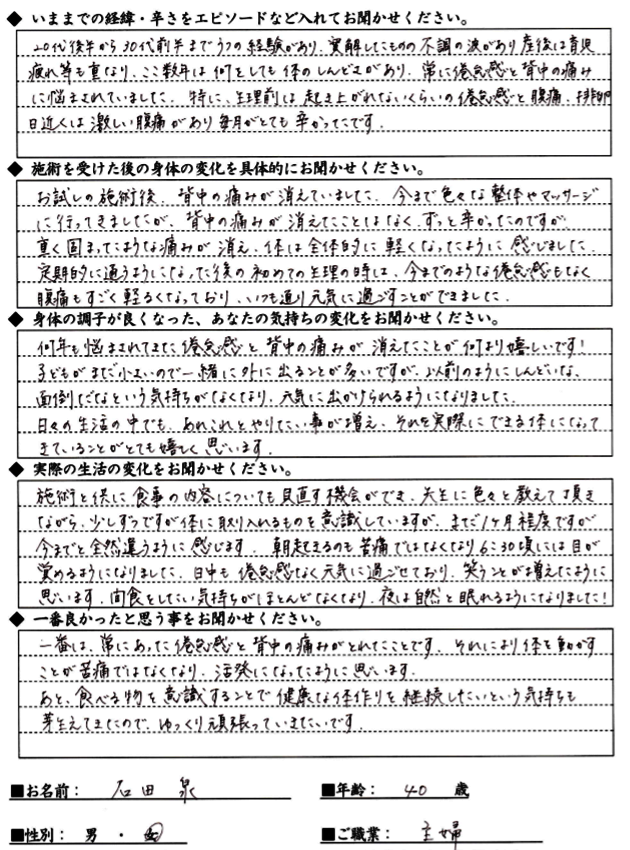 ◆ いままでの経緯・辛さをエピソードなど入れてお聞かせください。
20代後半から30代前半までうつの経験があり、寛解したものの不調の波があり産後は育児
疲れ等も重なり、ここ数年は何をしても体のしんどさがあり、常に倦怠感と背中の痛み
に悩まされていました。特に、生理前は起き上がれないくらいの倦怠感と腹痛、排卵
日近くは激しい腹痛があり毎月がとても辛かったです。
◆ 施術を受けた後の身体の変化を具体的にお聞かせください。
お試しの施術後、背中の痛みが消えていました。今まで色々な整体やマッサージ
に行ってきましたが、背中の痛みが消えたことはなく、ずっと辛かったのですが
重く固まったような痛みが消え、体は全体的に軽くなったように感じました。
定期的に通うようになった後の初めての生理の時は、今までのような倦怠感もなく
腹痛もすごく軽るくなっており、いつも通り元気に過ごすことができました。
◆ 身体の調子が良くなった、あなたの気持ちの変化をお聞かせください。
何年も悩まされてきた倦怠感と背中の痛みが消えたことが何より嬉しいです!
子どもがまだ小さいので一緒に外に出ることが多いですが、以前のようにしんどいな、
面倒だなという気持ちがなくなり、元気に出かけられるようになりました。
日々の生活の中でも、あれこれとやりたい事が増え、それを実際にできる体になって
きていることがとても嬉しく思います。
◆ 実際の生活の変化をお聞かせください。
施術と供に食事の内容についても見直す機会ができ、先生に色々と教えて頂き
ながら、少しずつですが体に取り入れるものを意識していますが、まだ1ヶ月程度ですが
今までと全然違うように感じます。朝起きるのも苦痛ではなくなり6:30頃には目が
覚めるようになりました。日中も倦怠感なく元気に過ごせており、笑うことが増えたように
思います。間食をしたい気持ちがほとんどなくなり、夜は自然と眠れるようになりました!
◆ 一番良かったと思う事をお聞かせください。
一番は、常にあった倦怠感と背中の痛みがとれたことです。それにより体を動かす
ことが苦痛ではなくなり、活発になったように思います。
あと、食べる物を意識することで健康な体作りを継続したいという気持ちも
芽生えてきたので、ゆっくり頑張っていきたいです。
■お名前： 石田 泉 ■年齢： 40 歳
■性別： 男 ・ 女 ■ご職業： 主婦